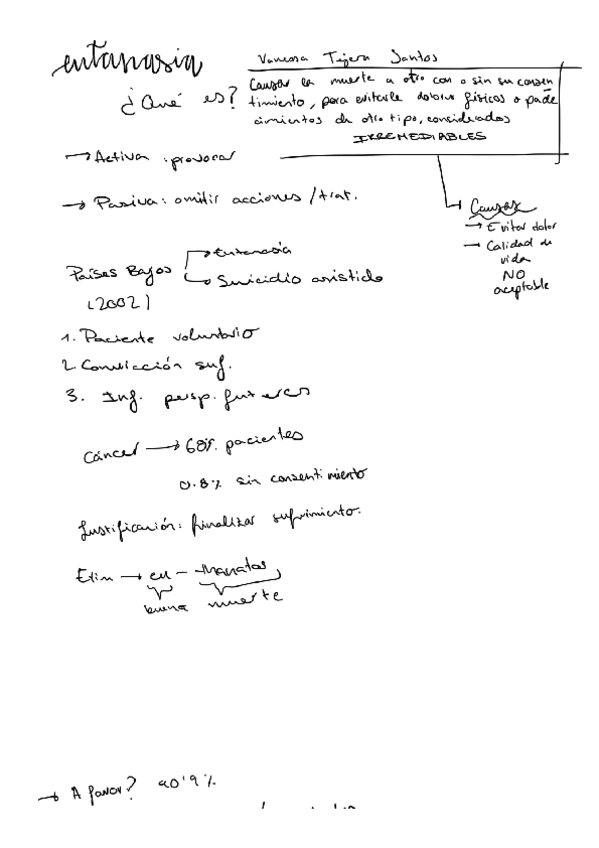 eutanasia
Vanessa Tejera Santos
¿Qué es?
Causar la muerte a otro con o sin su consen
timiento, para evitarle dolores físicos o pade
cimientos de otro tipo, considerados
IRREMEDIABLES
→ Activa: provocar
→ Pasiva: omitir acciones / trat.
Causas
→ Evitar dolor
→ Calidad de
vida
NO
aceptable
Países Bajos
(2002)
→ Eutanasia
→ Suicidio asistido
1. Paciente voluntario
2. Convicción suf.
3. Inf. persp. futuras
Cáncer → 68% pacientes
0.8% sin consentimiento
Justificación: finalizar sufrimiento.
Etim → eu - thanatos
buena muerte
→ A favor? 90'9%